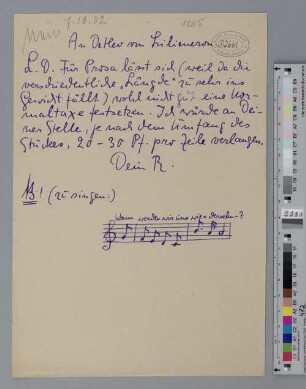 7.10.02
1285
An Detlev von Liliencron.
L. D. Für Prosa lässt sich (weil da die
verschiedentliche „Länge“ zu sehr ins
Gewicht fällt) wohl nicht gut eine Nor-
maltaxe festsetzen. Ich würde an Dei-
ner Stelle, je nach dem Umfang des
Stückes, 20-30 Pf. pro Zeile verlangen.
Dein R.
NB! (zu singen:)
Wann werden wir uns wie-dersehn-?